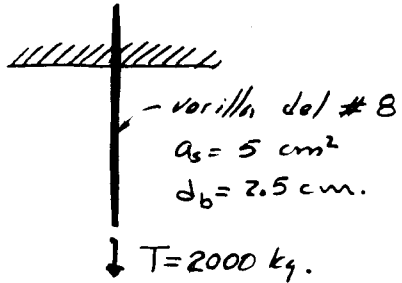 varilla del # 8
as = 5 cm²
db = 2.5 cm.
T = 2000 kg.